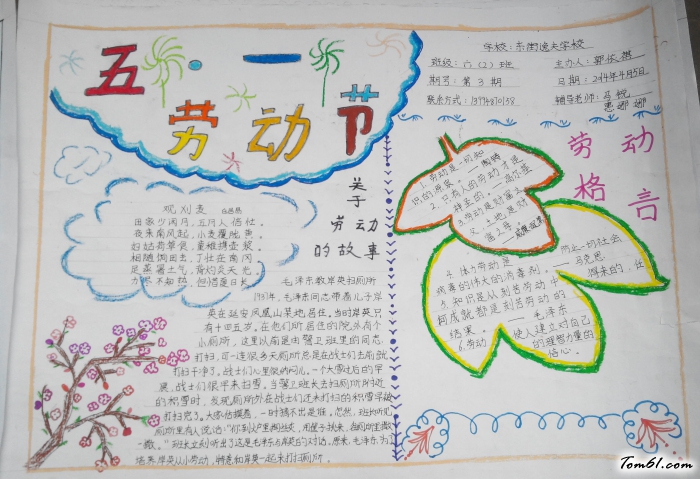 五·一
劳动节
学校:东街逸夫学校
班级:六(2)班
主办人:
期号:第3期
日期:2014年4月5日
联系方式:
辅导老师:马悦
劳动
格言
关于
劳动
的故事
观刈麦 白居易
田家少闲月,五月人倍忙。
夜来南风起,小麦覆陇黄。
妇姑荷箪食,童稚携壶浆,
相随饷田去,丁壮在南冈
足蒸暑土气,背灼炎天光。
力尽不知热,但惜夏日长
1.劳动是一切知
识的源泉。——陶铸
2.只有人的劳动才是
神圣的。——高尔基
3.劳动是财富之
父,土地是财
富之母。
4.体力劳动是
防止一切社会
病毒的伟大的消毒剂。——马克思
5.知识是从刻苦劳动中
得来的,任
何成就都是刻苦劳动的
结果。——毛泽东
6.劳动
使人建立对自己
的理智力量的
信心。
毛泽东教岸英扫厕所
毛泽东同志带着儿子岸
英在延安凤凰山某地居住。当时岸英只
有十四五岁。在他们所居住的院外有个
小厕所,这里以前是由警卫班里的同志
打扫,可一连很多天厕所总是在战士们去前就
打扫干净了。战士们心里很纳闷儿。一个大雪过后的早
晨,战士们很早来扫雪。当警卫班长去扫厕所附近
的积雪时,发现厕所外在战士们还未打扫的积雪早被
打扫完了。大家估摸着,一时猜不出是谁。忽然,班长听见
厕所里有人说话:
班长立刻听出了这是毛泽东与岸英的对话。原来,毛泽东为了
培养岸英从小劳动,特意和岸英一起来打扫厕所。
Tom61.com